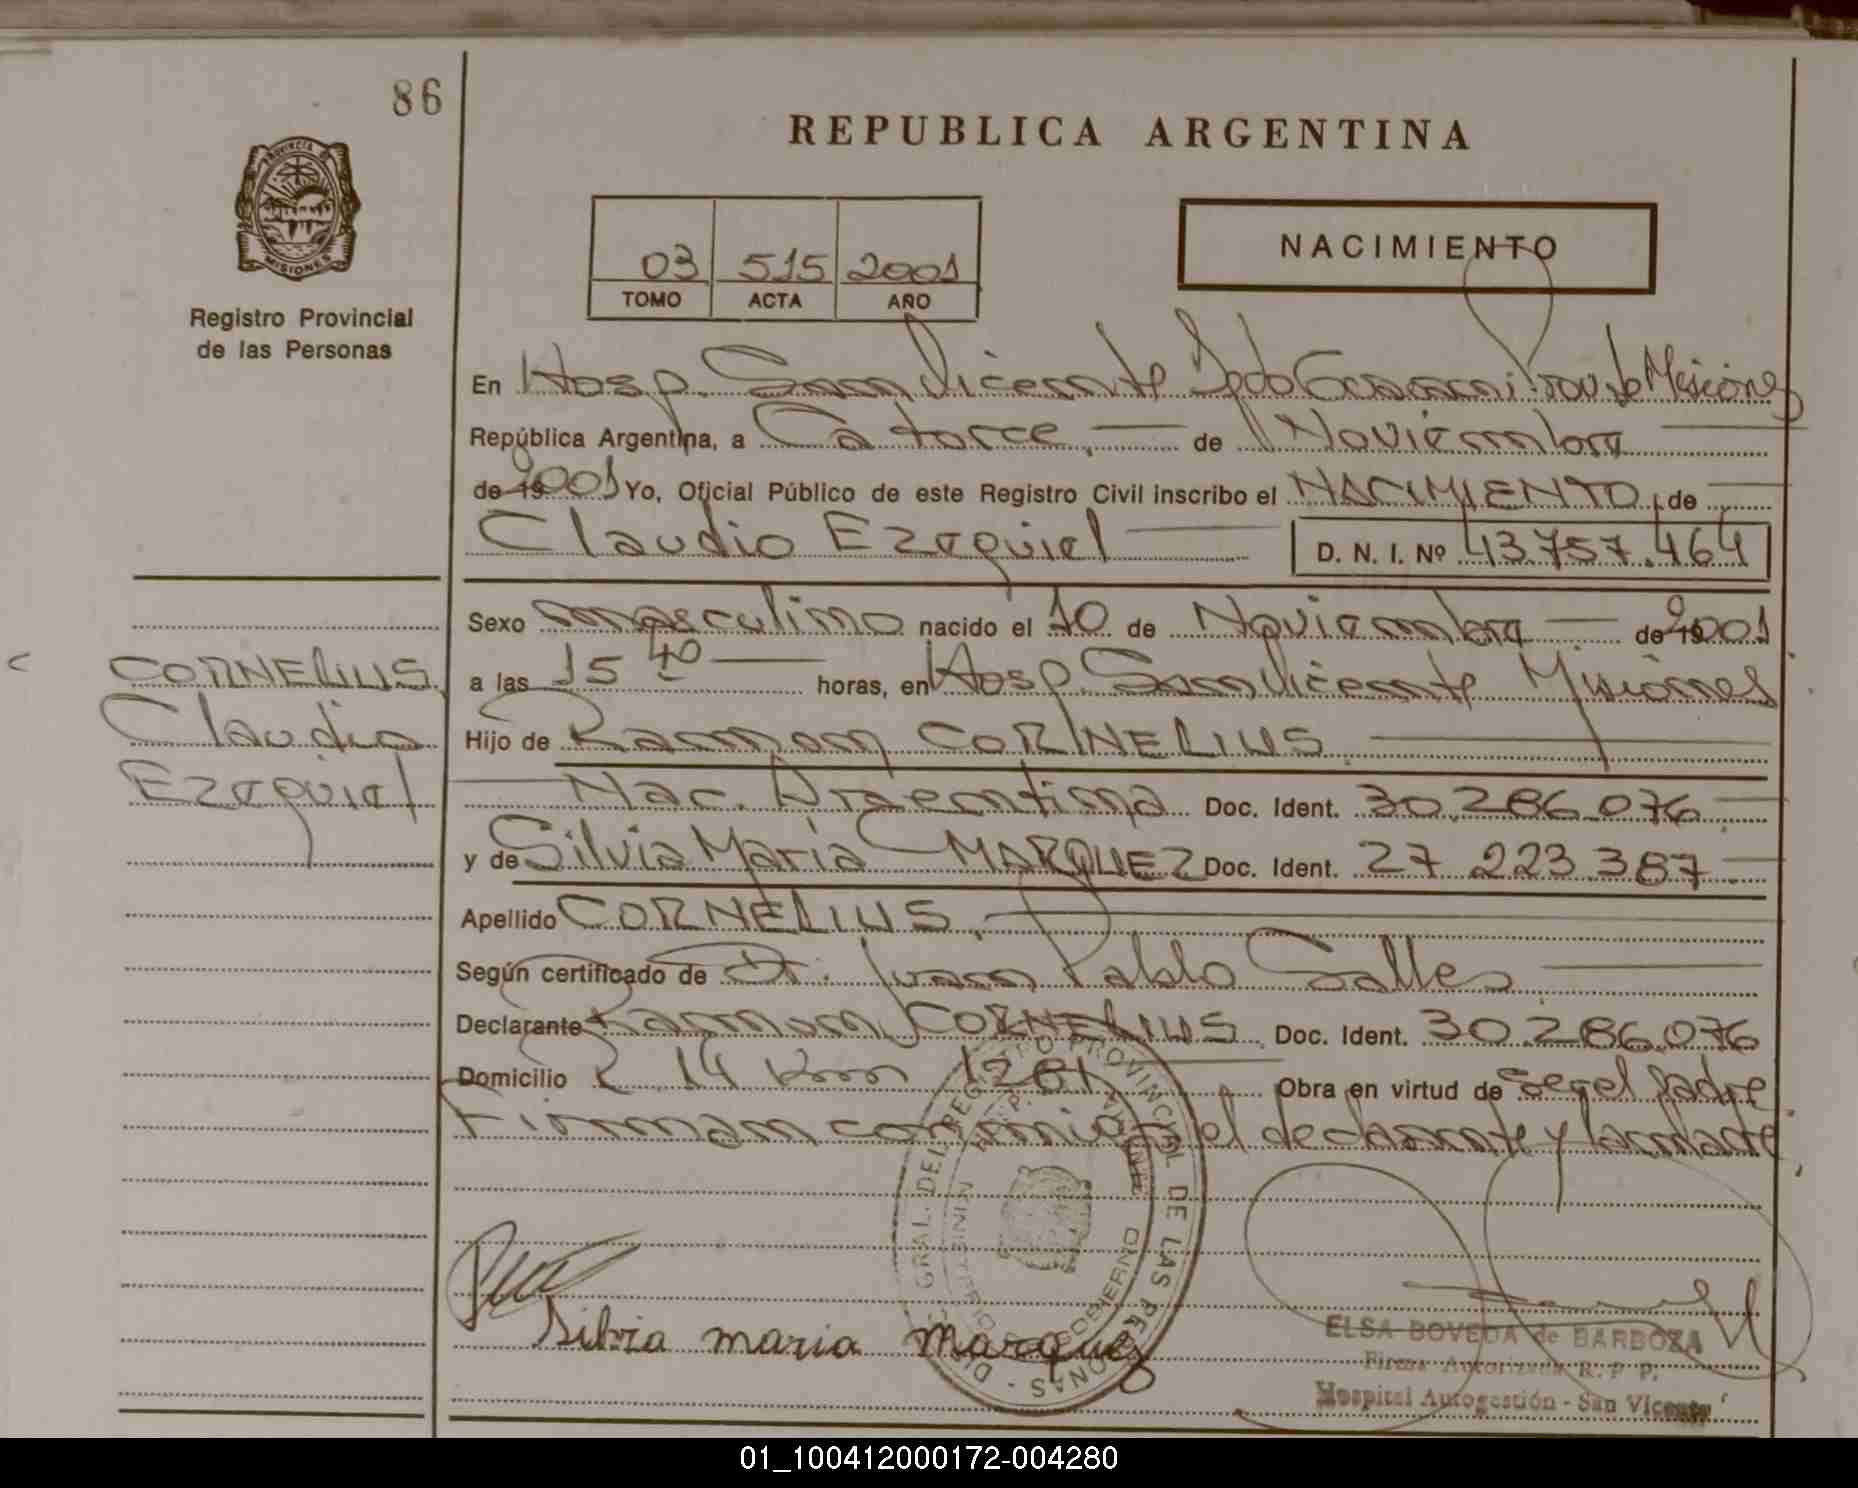 86
REPUBLICA ARGENTINA
PROVINCIA DE
MISIONES
Registro Provincial
de las Personas
03 515 2001
TOMO ACTA AÑO
NACIMIENTO
En Hosp. San Vicente Gdo Guaraní Prov de Misiones
República Argentina, a Catorce, de Noviembre
de 19 2001 Yo, Oficial Público de este Registro Civil inscribo el NACIMIENTO, de
Claudio Ezequiel D. N. I. Nº 43.757.464
Sexo masculino nacido el 10 de Noviembre de 19 2001
a las 15 40 horas, en Hosp. San Vicente Misiones
Hijo de Ramon CORNELIUS
Nac. Argentina Doc. Ident. 30.286.076
y de Silvia Maria MARQUEZ Doc. Ident. 27 223.387
Apellido CORNELIUS,
Según certificado de Dr. Juan Pablo Salles
Declarante Ramon CORNELIUS Doc. Ident. 30.286.076
Domicilio R 14 Km 1281 Obra en virtud de ser el padre
Firman conmigo el declarante y la madre
CORNELIUS
Claudio
Ezequiel
Silvia maria marquez
DIR. GRAL. DEL REGISTRO PROVINCIAL DE LAS PERSONAS
MINISTERIO GOBIERNO
ELSA BOVEDA de BARBOZA
Firma Autorizada R. P. P.
Hospital Autogestión - San Vicente
01_100412000172-004280